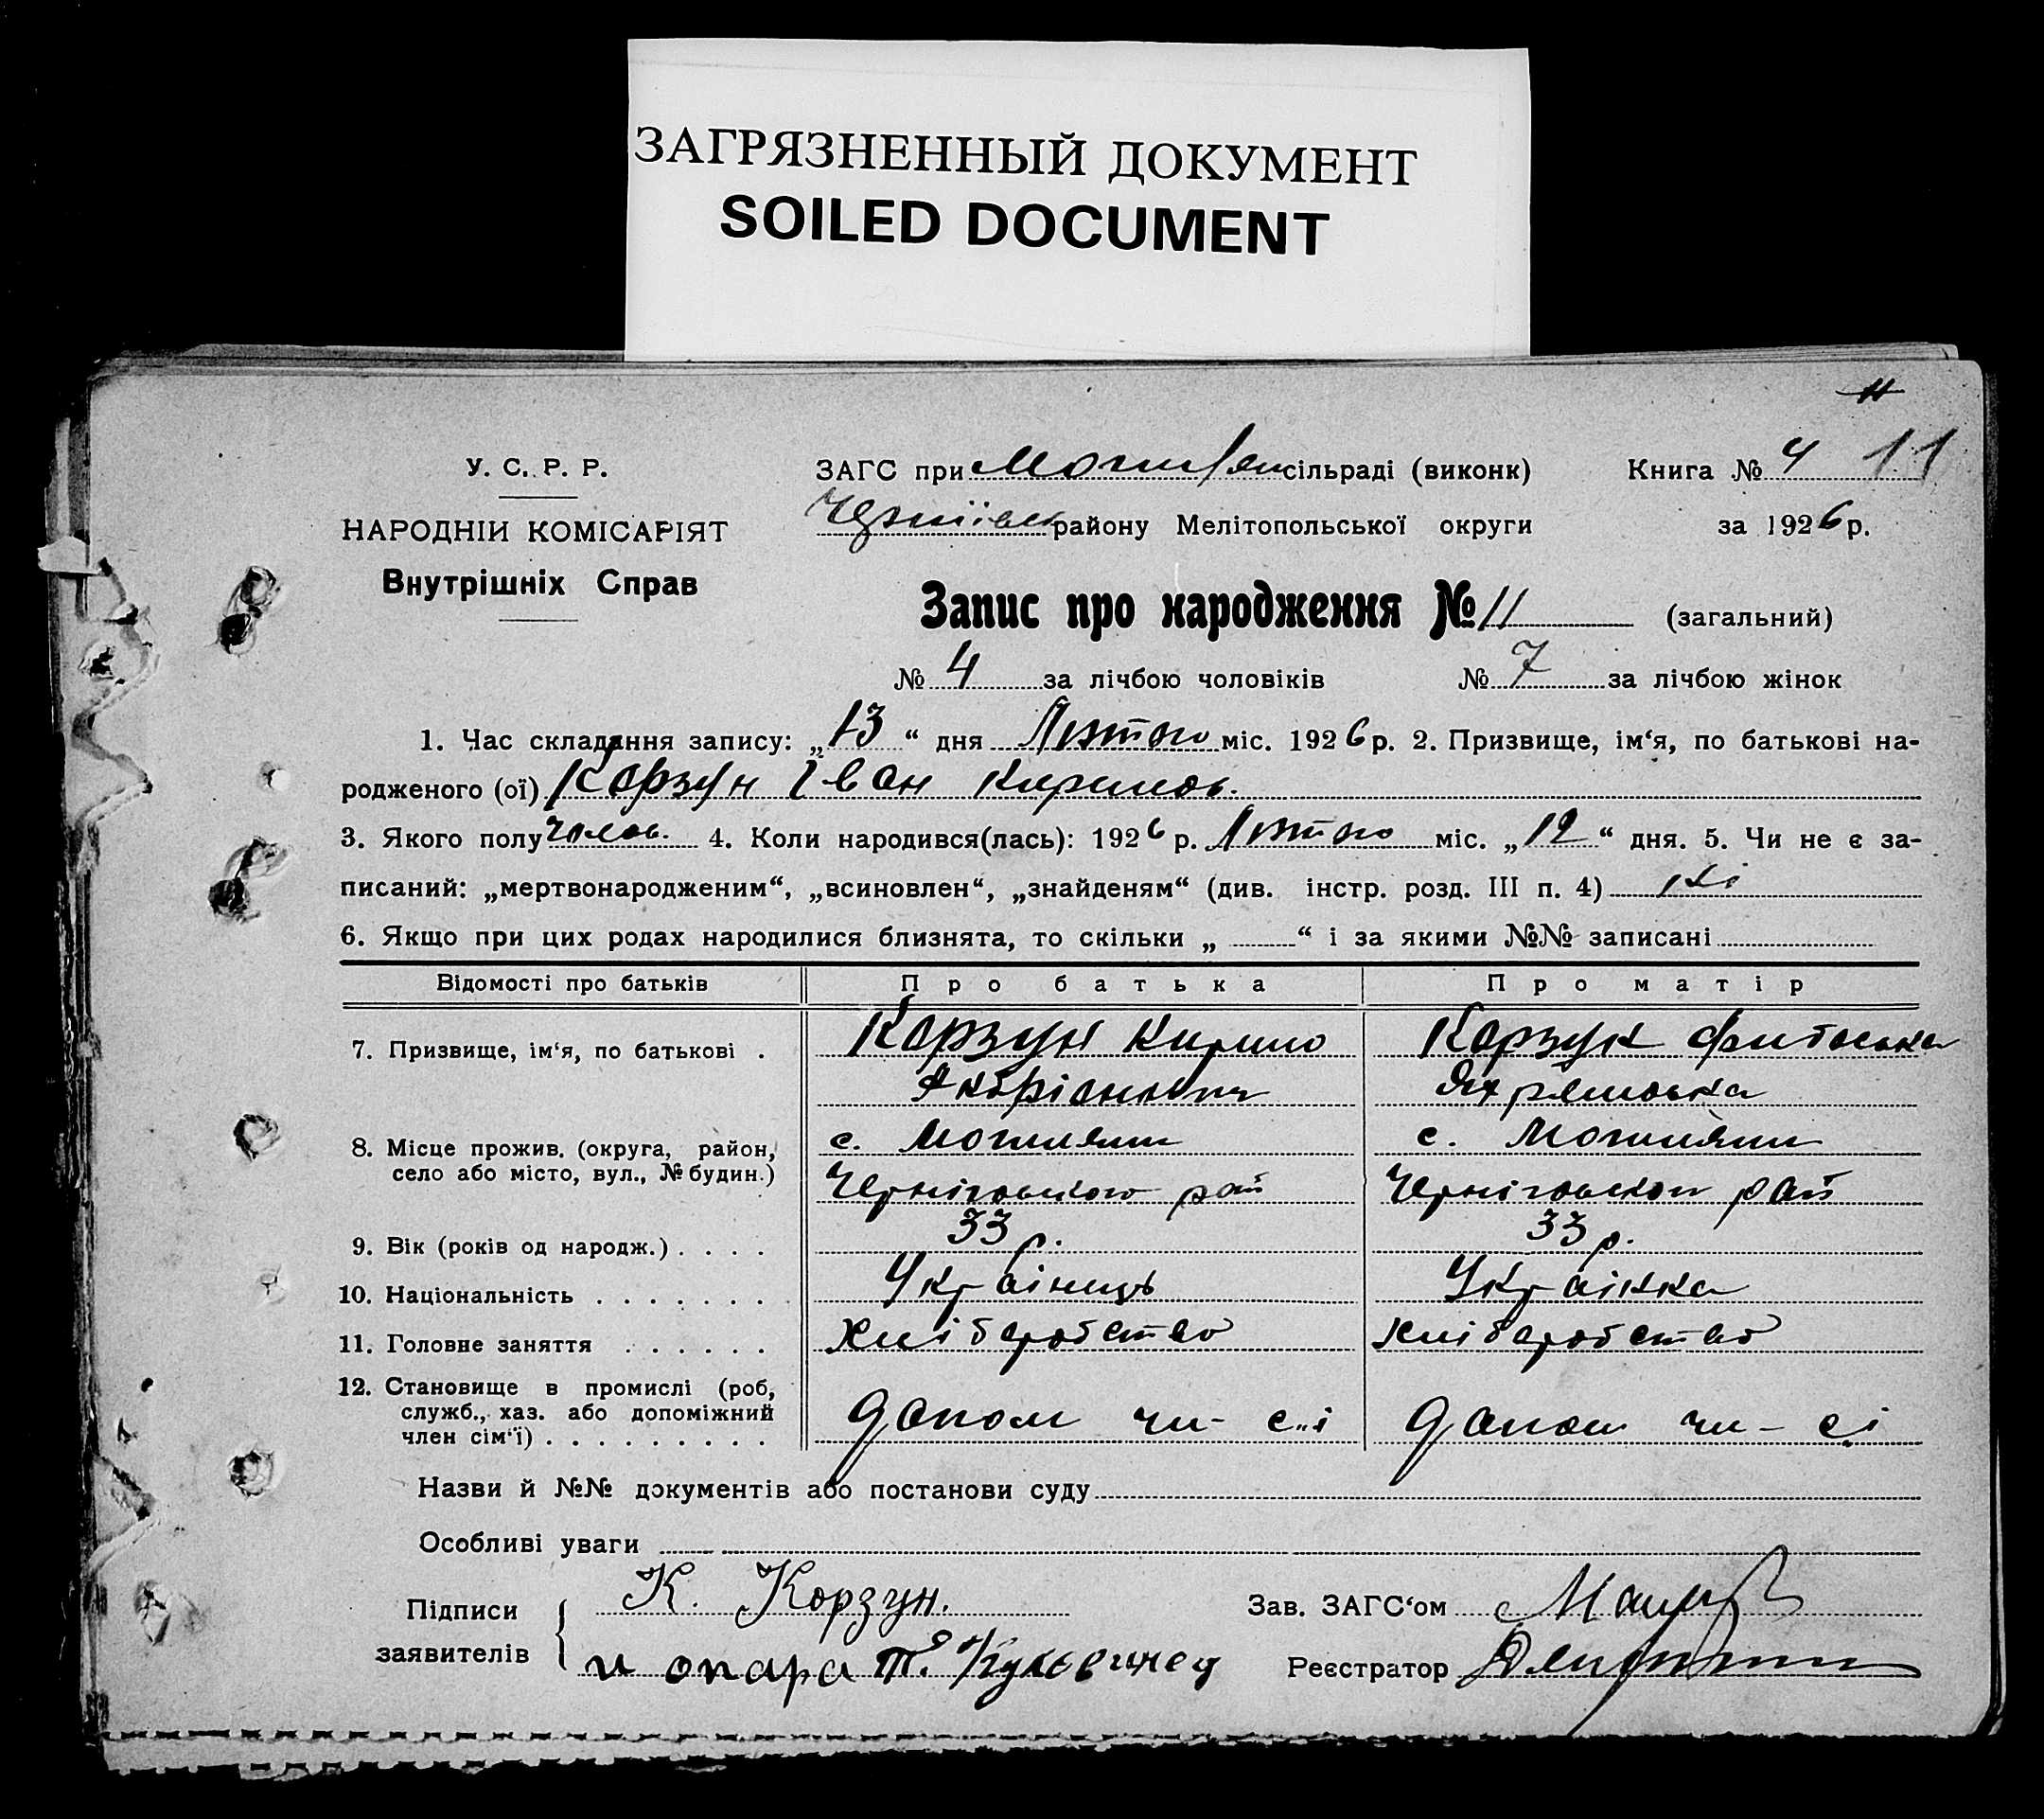 ЗАГРЯЗНЕННЫЙ ДОКУМЕНТ
SOILED DOCUMENT
11
У. С. Р. Р.
НАРОДНІЙ КОМІСАРІЯТ
Внутрішніх Справ
ЗАГС при сільраді (виконк)
Книга № 4 11
району Мелітопольської округи
за 1926 р.
Запис про народження № 11 (загальний)
№ 4 за лічбою чоловіків № 7 за лічбою жінок
1. Час складання запису: „13“ дня Лютого міс. 1926 р. 2. Призвище, ім‘я, по батькові на-
родженого (ої) Корзун Іван Кирилов.
3. Якого полу чолов. 4. Коли народився(лась): 1926 р. Лютого міс. „12“ дня. 5. Чи не є за-
писаний: „мертвонародженим“, „всиновлен“, „знайденям“ (див. інстр. розд. III п. 4) ні
6. Якщо при цих родах народилися близнята, то скільки „ “ і за якими №№ записані
Відомості про батьків Про батька Про матір
7. Призвище, ім‘я, по батькові . Корзун Кирило Корзун
8. Місце прожив. (округа, район, село або місто, вул., № будин.)
с. Могиляни с. Могиляни
Черніговського рай Черніговского рай
9. Вік (років од народж.) . . . . 33 р. 33 р.
10. Національність . . . . . . . Українець Українка
11. Головне заняття . . . . . . хліборобство хліборобство
12. Становище в промислі (роб, служб., хаз. або допоміжний член сім‘ї) . . . . . . . . .
допом чл- с.і допом чл- с.і
Назви й №№ документів або постанови суду
Особливі уваги
Підписи заявителів
К. Корзун.
и опара Т.
Зав. ЗАГС‘ом
Реєстратор